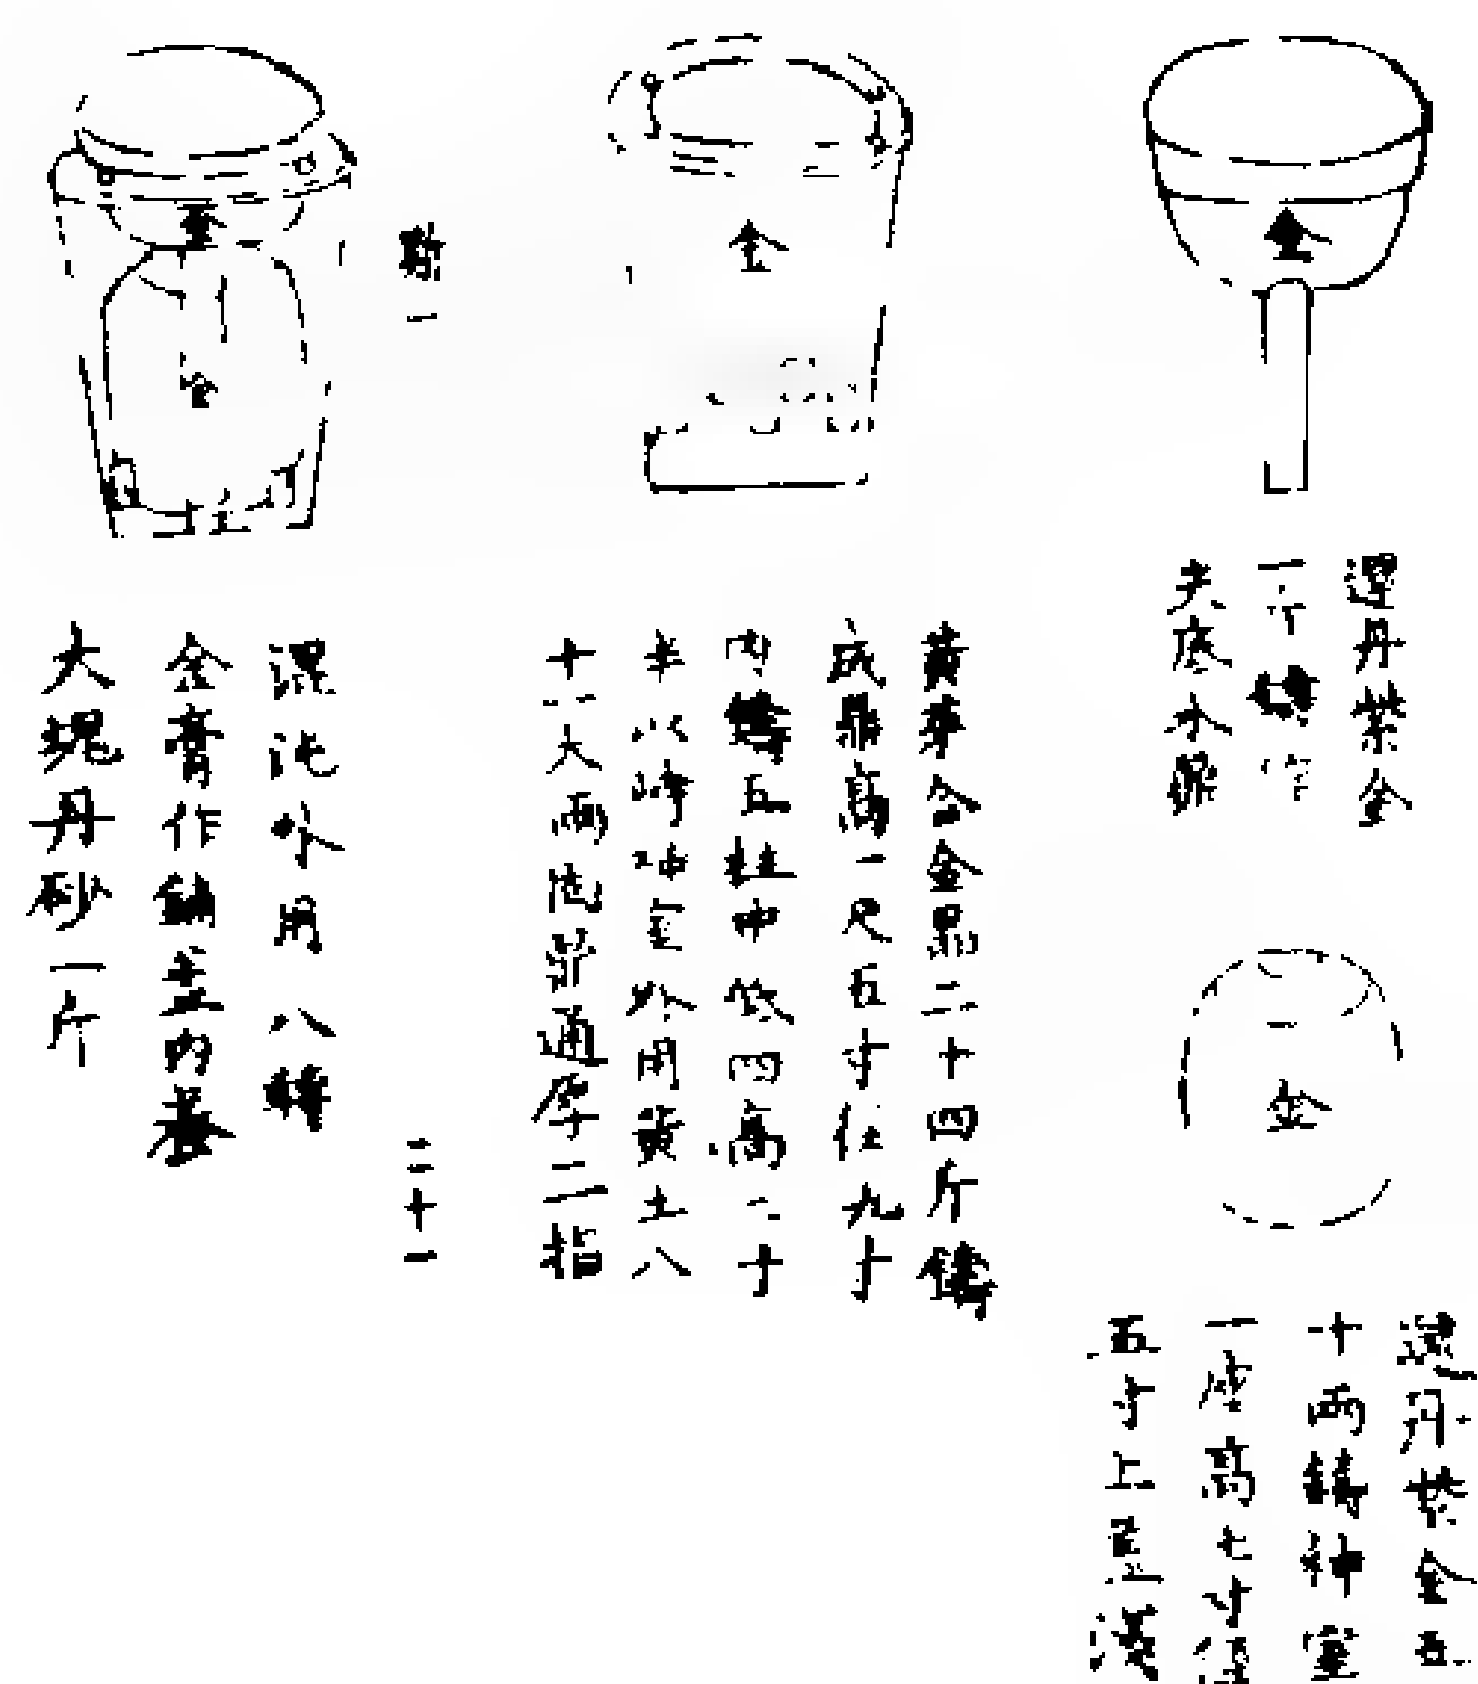 還丹紫金
一斤鑄作
夫底水鼎
金
金
還丹紫金五
十兩鑄神室
一座高七寸徑
五寸上至淺
金
黃芽合金鼎二十四斤鑄
成鼎高一尺五寸徑九寸
內鑄五柱中間四高二寸
半以
神室外用黃土八
十一大兩
鼎通厚二指
金
一
二十一
混沌外用八轉
金膏作鋪盖內養
大塊丹砂一斤
金